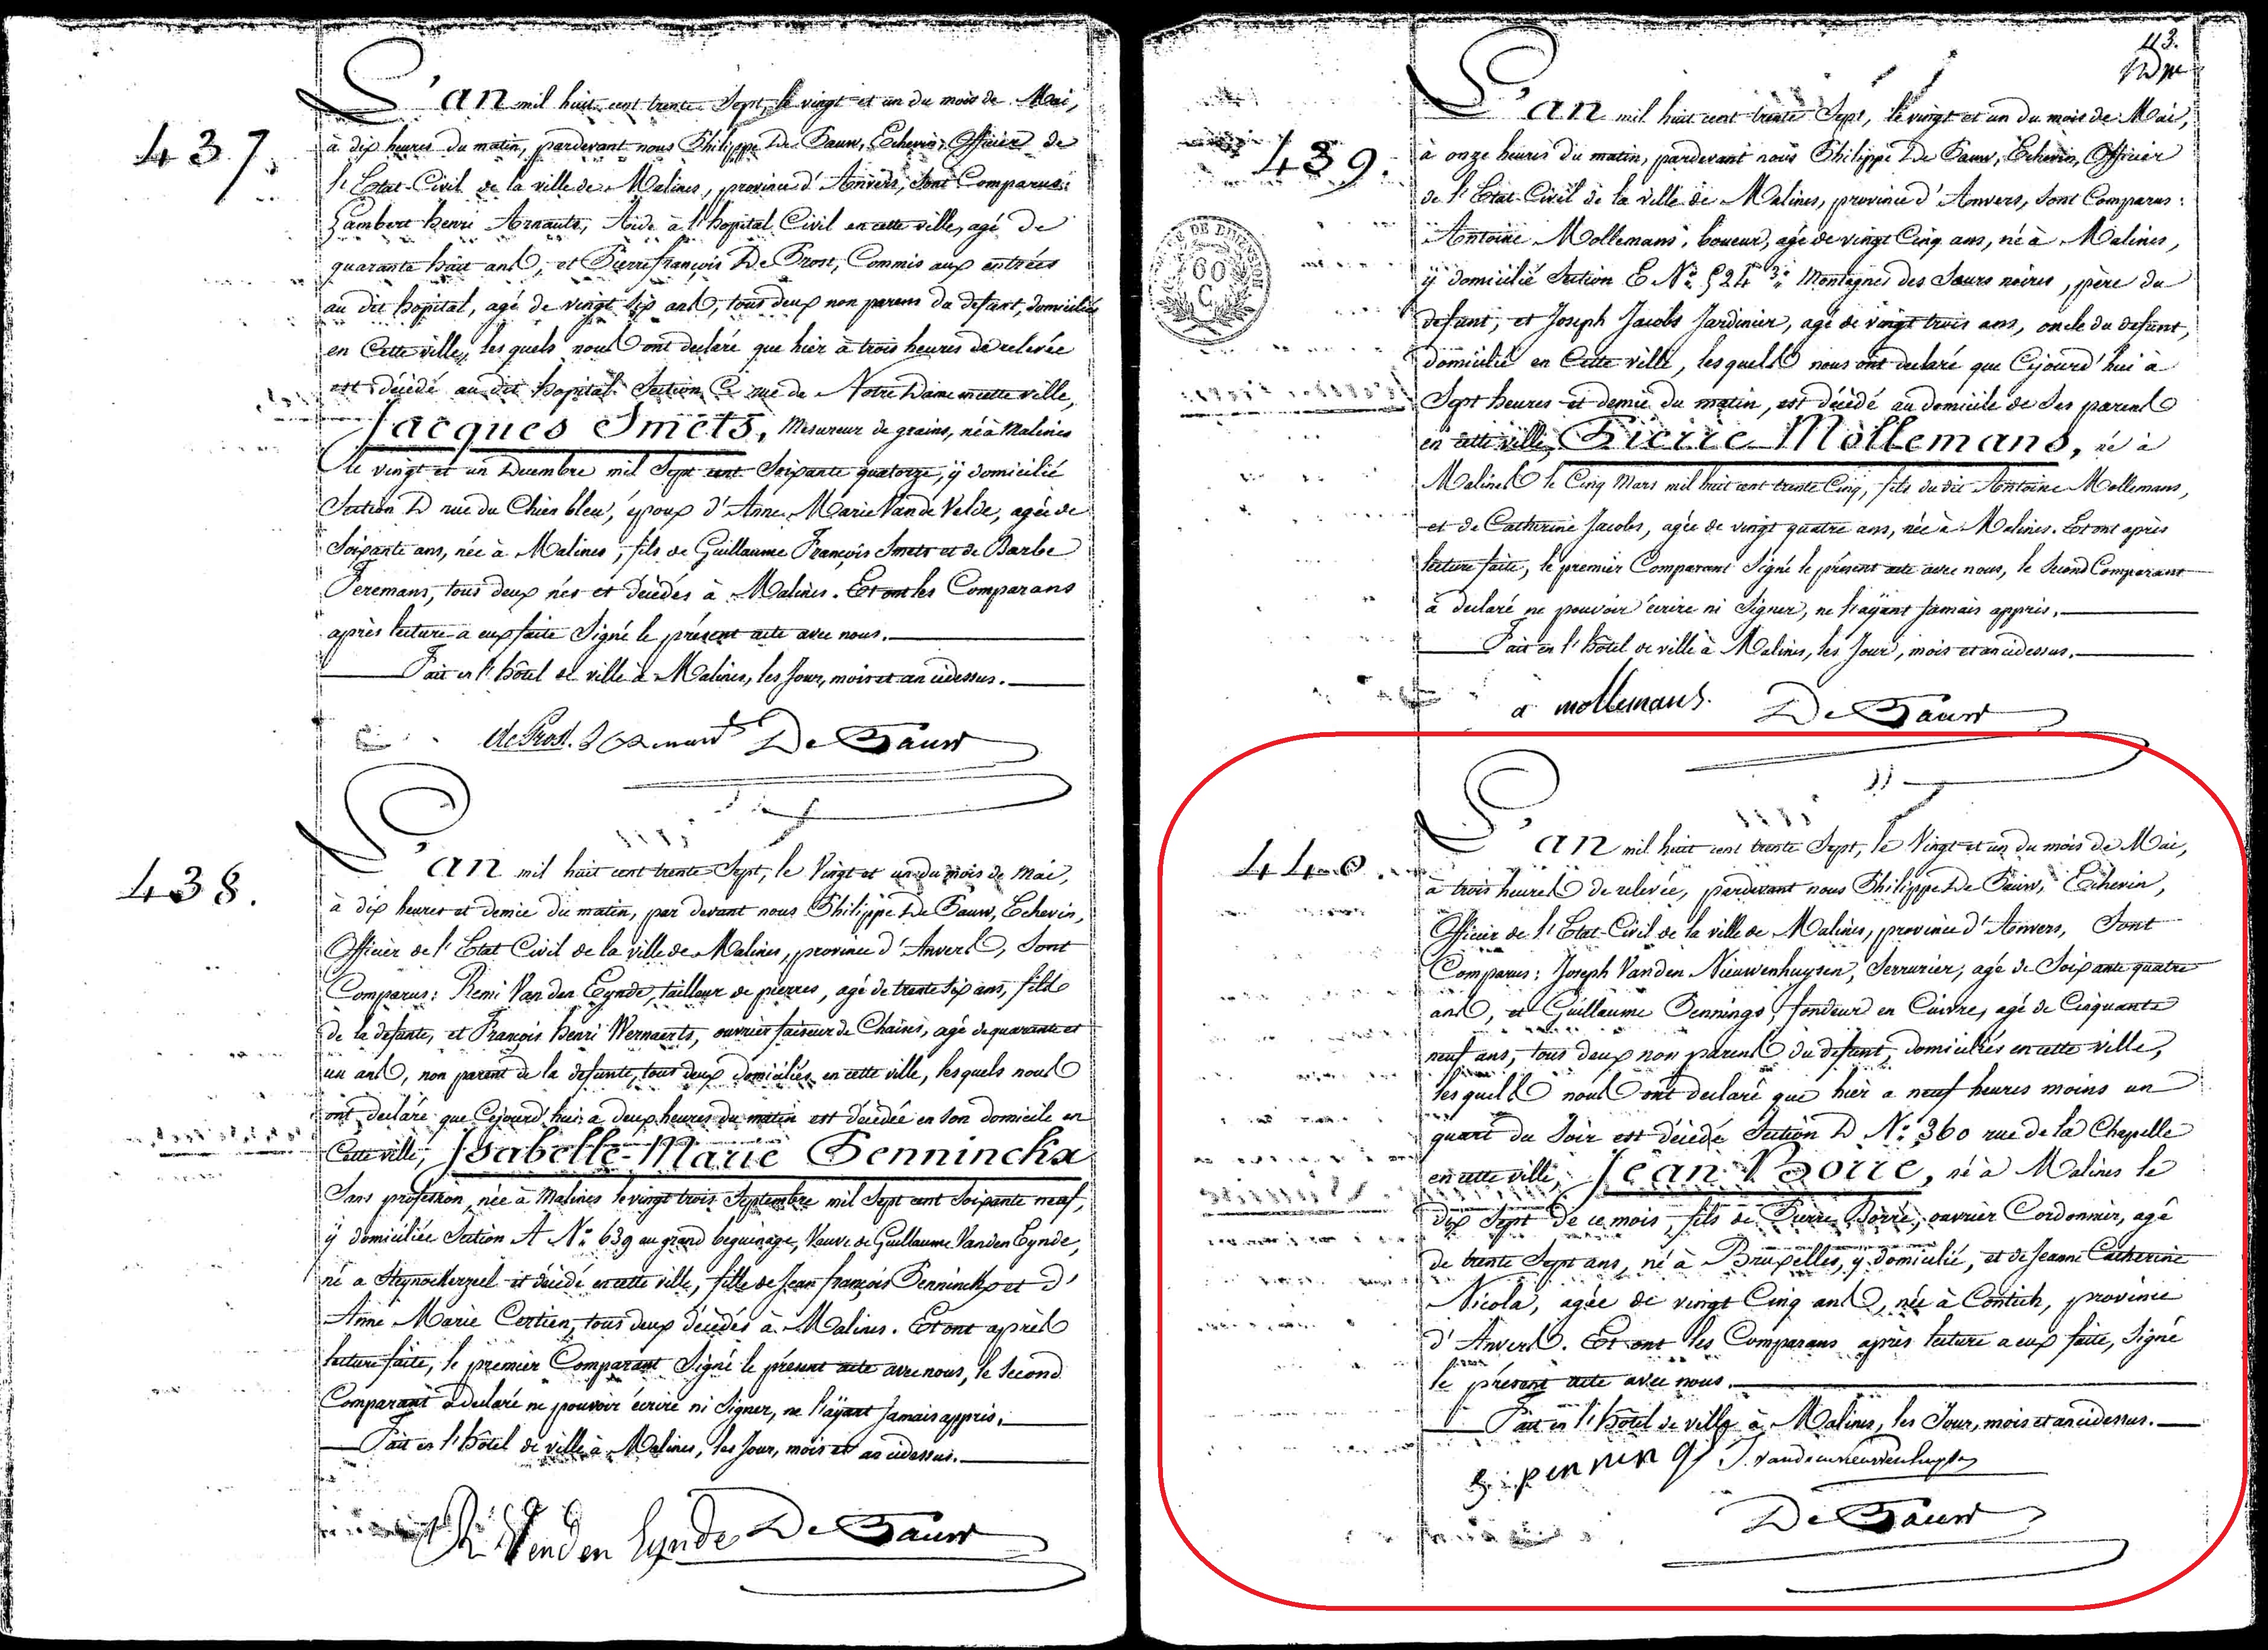 437.
L'an mil huit cent trente Sept, le vingt et un du mois de Mai,
à dix heures du matin, pardevant nous Philippe De Bauw, Echevin, Officier de
l'Etat-Civil de la ville de Malines, province d'Anvers, Sont Comparus:
Lambert henri Arnauts, Aide à l'hopital Civil en cette ville, agé de
quarante huit ans, et Pierre françois De Prost, Commis aux entrées
au dit hopital, agé de vingt Six ans, tous deux non parens du defunt, domiciliés
en Cette ville, les quels nous ont declaré que hier à trois heures de relevée
est décédé au dit hopital Section C rue de Notre Dame en cette ville,
Jacques Smets, Mesureur de grains, né à Malines
le vingt et un Decembre mil Sept cent Soixante quatorze, ÿ domicilié
Section D rue du Chien bleu, époux d'Anne Marie Van de Velde, agée de
Soixante ans, née à Malines, fils de Guillaume François Smets et de Barbe
Teremans, tous deux nés et décédés à Malines. Et ont les Comparans
après lecture a eux faite Signé le présent acte avec nous.
Fait en l'hôtel de ville à Malines, les Jour, mois et an cidessus.
de Prost. De Bauw
438.
L'an mil huit cent trente Sept, le Vingt et un du mois de Mai,
à dix heures et demie du matin, par devant nous Philippe De Bauw, Echevin,
Officier de l'Etat Civil de la ville de Malines, province d'Anvers, Sont
Comparus: Remi Van den Eynde, tailleur de pierres, agé de trente Six ans, fils
de la defunte, et François henri Wernaerts, ouvrier faiseur de Chaises, agé de quarante et
un ans, non parent de la defunte, tous deux domiciliés en cette ville, lesquels nous
ont declaré que Cejourd'hui a deux heures du matin est décédée en Son domicile en
Cette ville, Isabelle-Marie Pennincks
Sans profession, née à Malines le vingt trois Septembre mil Sept cent Soixante neuf,
ÿ domiciliée Section A N° 639 au grand beguinage, Veuve de Guillaume Van den Eynde,
né a Steynockerzeel et décédé en cette ville, fille de Jean françois Penninckx et d'
Anne Marie Certien, tous deux décédés à Malines. Et ont après
lecture faite, le premier Comparant Signé le présent acte avec nous, le Second
Comparant a declaré ne pouvoir écrire ni Signer, ne l'aÿant Jamais appris.
Fait en l'hôtel de ville à Malines, les Jour, mois et an cidessus.
R Van den Eynde De Bauw
43.
439.
60
C.
L'an mil huit cent trente Sept, le vingt et un du mois de Mai,
à onze heures du matin, pardevant nous Philippe De Bauw, Echevin, Officier
de l'Etat-Civil de la ville de Malines, province d'Anvers, Sont Comparus:
Antoine Mollemans, boueur, agé de vingt Cinq ans, né à Malines,
ÿ domicilié Section E N° 524 3° Montagnes des Sœurs noires, père du
defunt, et Joseph Jacobs Jardinier, agé de vingt trois ans, oncle du defunt,
domicilié en Cette ville, lesquels nous ont declaré que Cejourd'hui à
Sept heures et demie du matin, est décédé au domicile de Ses parens
en cette ville, Pierre Mollemans, né à
Malines le Cinq Mars mil huit cent trente Cinq, fils du dit Antoine Mollemans,
et de Catherine Jacobs, agée de vingt quatre ans, née à Malines. Et ont après
lecture faite, le premier Comparant Signé le présent acte avec nous, le Second Comparant
à declaré ne pouvoir écrire ni Signer, ne l'aÿant Jamais appris.
Fait en l'hôtel de ville à Malines, les Jour, mois et an cidessus.
a mollemans. De Bauw
440.
L'an mil huit cent trente Sept, le Vingt et un du mois de Mai,
à trois heures de relevée, pardevant nous Philippe De Bauw, Echevin,
Officier de l'Etat-Civil de la ville de Malines, province d'Anvers, Sont
Comparus: Joseph Van den Nieuwenhuysen, Serrurier, agé de Soixante quatre
ans, et Guillaume Pennings, fondeur en Cuivre, agé de Cinquante
neuf ans, tous deux non parens du defunt, domiciliés en cette ville,
les quels nous ont declaré que hier a neuf heures moins un
quart du Soir est décédé Section D N° 360 rue de la Chapelle
en cette ville, Jean Borre, né à Malines le
dix Sept de ce mois, fils de Pierre Borre, ouvrier Cordonnier, agé
de trente Sept ans, né à Bruxelles, y domicilié, et de Jeanne Catherine
Nicola, agée de vingt Cinq ans, née à Contich, province
d'Anvers. Et ont les Comparans après lecture a eux faite, Signé
le présent acte avec nous.
Fait en l'hôtel de ville à Malines, les Jour, mois et an cidessus.
G. pennings J. vandennieuwenhuysen
De Bauw